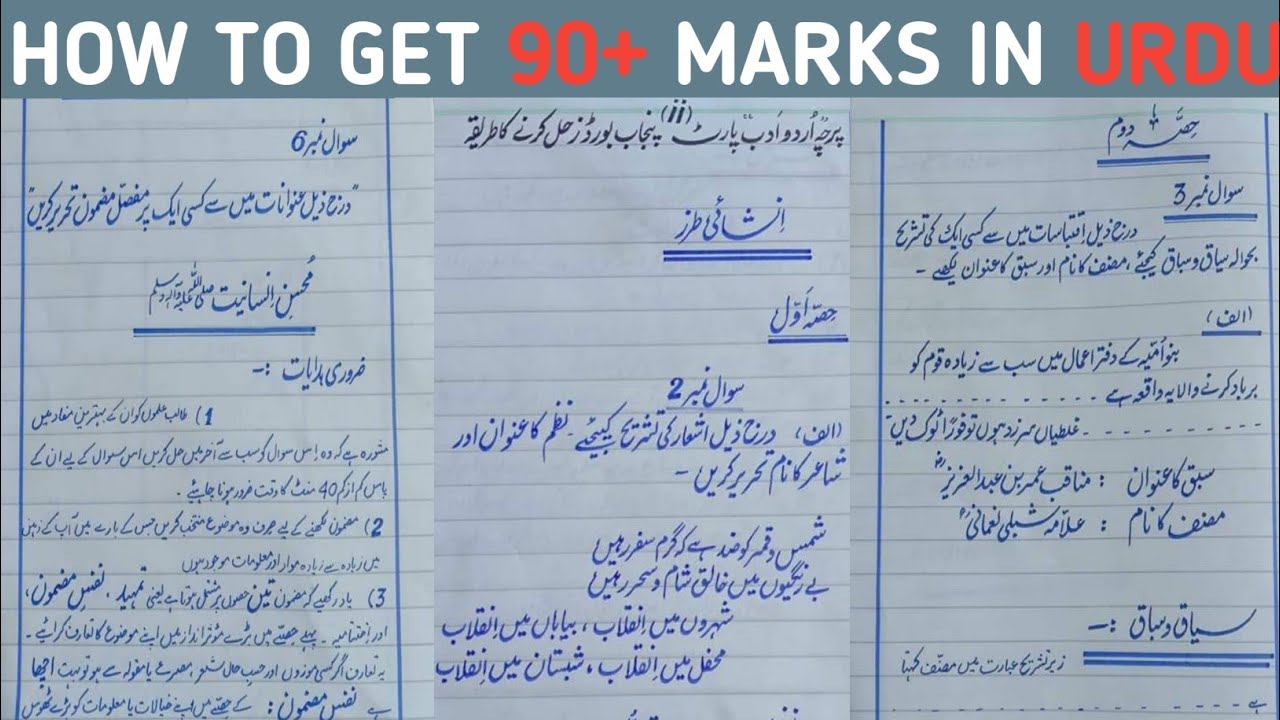 HOW TO GET 90+ MARKS IN URDU
سوال نمبر 6
"درج ذیل عنوانات میں سے کسی ایک پر مفصّل مضمون تحریر کریں"
مُحسنِ اِنسانیت صلی اللہ علیہ وآلہ وسلم
ضروری ہدایات :-
1) طالب علموں کو ان کے بہترین مفاد میں
مشورہ ہے کہ وہ اِس سوال کو سب سے آخر میں حل کریں اس سوال کے لیے ان کے
پاس کم از کم 40 منٹ کا وقت ضرور ہونا چاہئیے .
2) مضمون لکھنے کے لیے صرف وہ موضوع منتخب کریں جس کے بارے میں آپ کے ذہن
میں زیادہ سے زیادہ مواد اور معلومات موجود ہوں
3) یاد رکھیے کہ مضمون تین حصوں پر مشتمل ہوتا ہے یعنی تمہید ، نفسِ مضمون ،
اور اِختتامیہ ۔ پہلے حصّے میں بڑے مؤثر انداز میں اپنے موضوع کا تعارف کرائیے ۔
یہ تعارف اگر کسی موزوں اور حسبِ حال شعر ، مصرعے یا مقولہ سے ہو تو بہت اچھا
ہے نفسِ مضمون : کے حصّے میں اپنے خیالات یا معلومات کو بڑے ٹھوس
پرچہ اُردو اَدب" پارٹ (ii) پنجاب بورڈز حل کرنے کا طریقہ
اِنشائی طرز
حِصّہ اَوّل
سوال نمبر 2
(الف) درج ذیل اشعار کی تشریح کیجئیے ۔ نظم کا عنوان اور
شاعر کا نام تحریر کریں -
شمس و قمر کو ضد ہے کہ گرم سفر رہیں
بے رنگیوں میں خالق شام و سحر رہیں
شہروں میں اِنقلاب ، بیاباں میں اِنقلاب
محفل میں اِنقلاب ، شبستان میں اِنقلاب
حِصّہ دوم
سوال نمبر 3
درج ذیل اِقتباسات میں سے کسی ایک کی تشریح
بحوالہ سیاق و سباق کیجئے ، مصنف کا نام اور سبق کا عنوان لکھیے -
(الف)
بنو اُمّیہ کے دفتر اعمال میں سب سے زیادہ قوم کو
برباد کرنے والا یہ واقعہ ہے - - - - - - - - - -
- - - - - - - - غلطیاں سرزد ہوں تو فوراً ٹوک دیں
سبق کا عنوان : مناقب عمر بن عبدالعزیزؒ
مصنف کا نام : علّامہ شبلی نعمانیؒ
سیاق و سباق :-
زیرِ تشریح عبارت میں مصنف کہتا
ہے - - - - - - - - - -